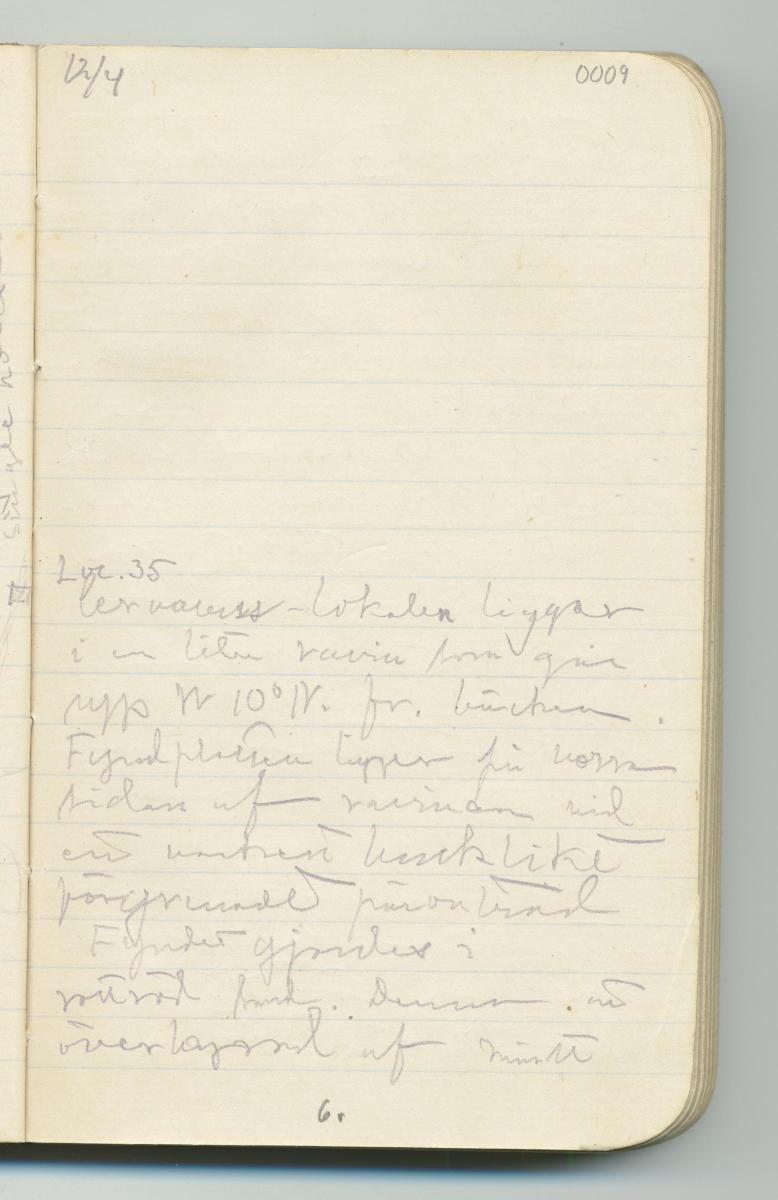 12/4
0009
Loc. 35
Cervaviss-lokalen ligger
i en liten ravin som går
upp W 10° N. fr. bäcken.
Fyndplatsen ligger på norra
sidan af ravinen vid
ett busklikt
förgrenadt päronträd
Fyndet gjordes i
sand. Denna
överlagrad af
6.